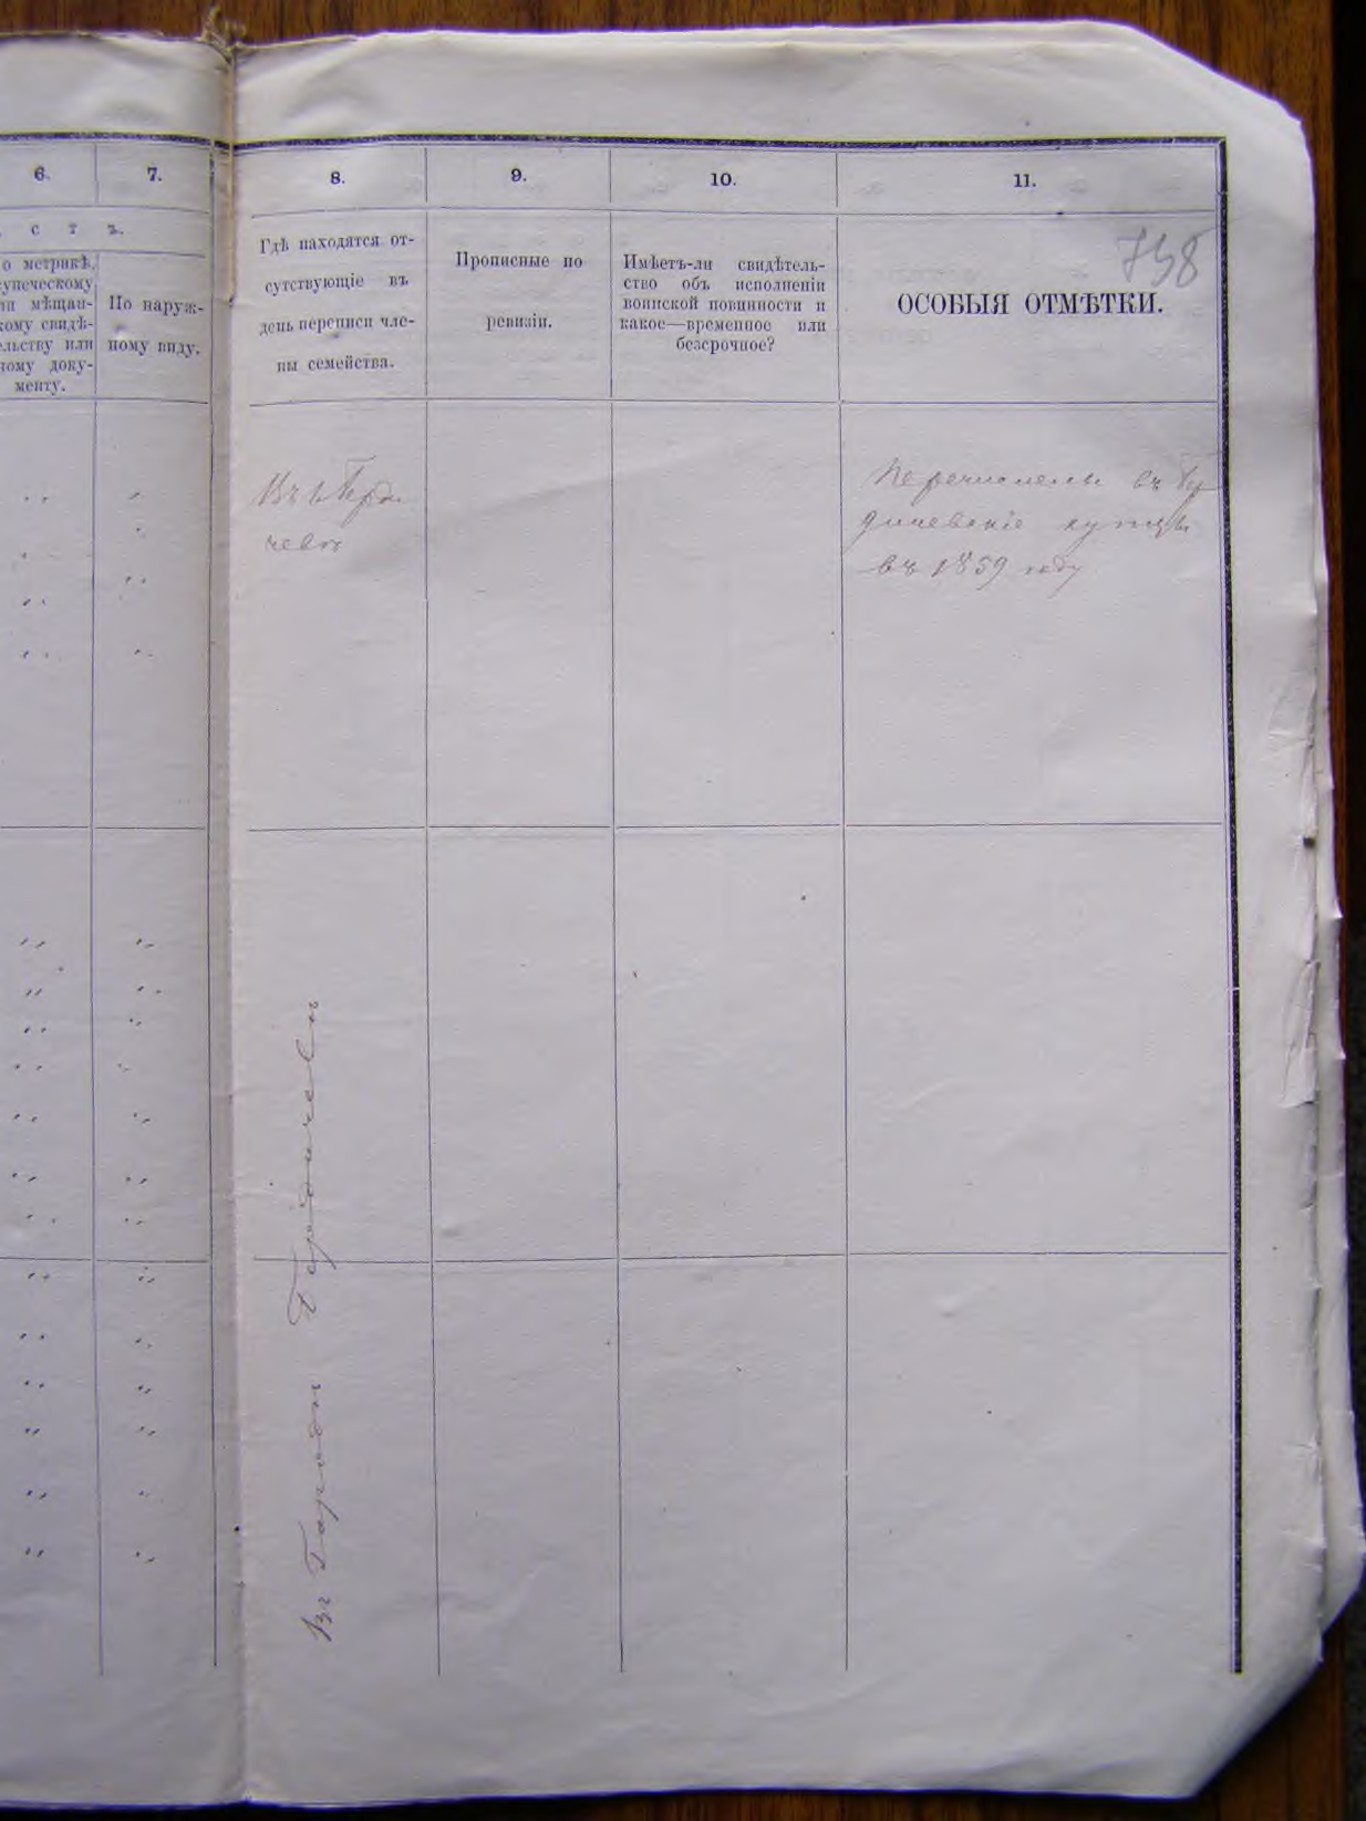 6.
7.
8.
9.
10.
11.
с т ъ.
о метрикѣ,
купеческому
ли мѣщан-
скому свидѣ-
тельству или
ному доку-
менту.
По наруж-
ному виду.
Гдѣ находятся от-
сутствующіе въ
день переписи чле-
ны семейства.
Прописные по
ревизіи.
Имѣетъ-ли свидѣтель-
ство объ исполненіи
воинской повинности и
какое—временное или
безсрочное?
738
ОСОБЫЯ ОТМѢТКИ.
Въ г. Берди
чевѣ
Перечислены въ Бер
дичевскіе купцы
въ 1859 году
Въ Городѣ Бердичевѣ